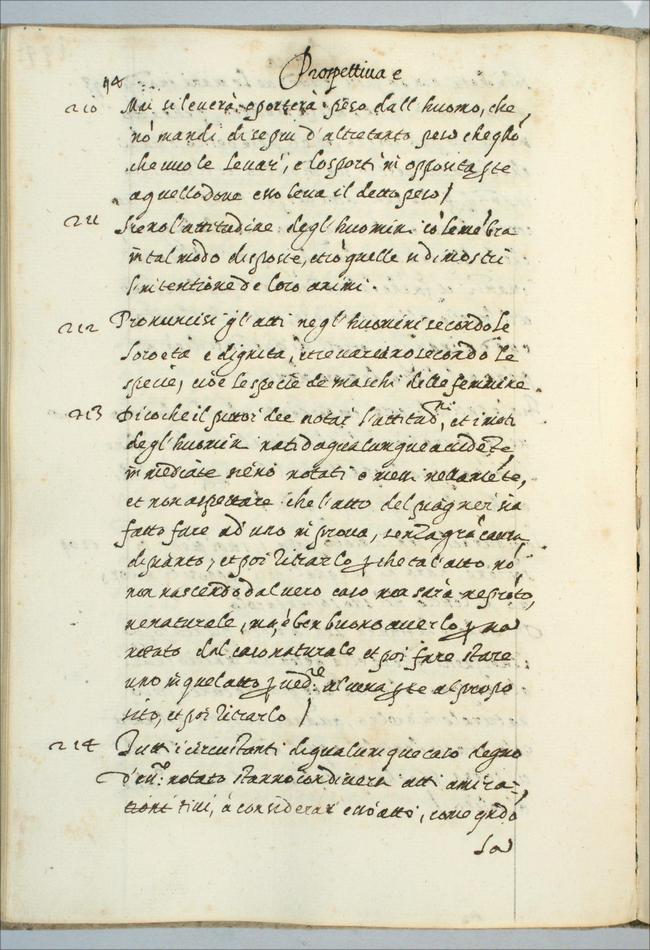 Prospettiua e
94
210 Mai si leuerà o porterà peso dall' huomo, che
nō mandi di se piu d'altretanto peso che q̄llo
che vuole leuare, e lo sporti in opposita pte
a quello doue esso leua il detto peso /
211 Sieno l'attitudine degl' huomini cō le mēbra
in tal modo disposte, che cō quelle si dimostri
l'intentione de loro animi.
212 Pronuncisi gl' atti negl' huomini secondo le
loro età e dignità, et se uarieranno secōdo le
specie, cioè le specie de maschi delle femmine.
213 Dico che il pittor dee notar l'attitudni, et i moti
degl' huomin nati da qualunque accidēte,
immediate
et non aspettare che l'atto del piagner sia
fatto fare ad' uno in proua, senza grā causa
di pianto, et poi ritrarlo, p che tal' atto nō
non nascendo dal uero caso non sarà ne prōto,
ne naturale, ma è ben buono auerlo p ma
notato dal caso naturale et poi fare stare
uno in quel atto p ued.re alcuna pte al propo
sito, et poi ritrarlo /
214 Tutti i circustanti di qualunque caso degno
d'ess.re notato stanno con diuersi atti amira-
tiui, a considerar esso atto, come q̄ndo
la